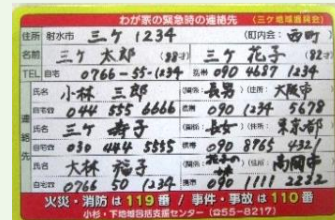 わが家の緊急時の連絡先 (三ケ地域振興会)
住所 射水市 三ケ 1234 (町内会: 西町)
名前 三ケ 太郎 (88才) 三ケ 花子 (82才)
TEL 自宅 0766-55-1234 携帯 090 4687 1234
連絡先
氏名 小林 三郎 (関係: 長男) (住所: 大阪市
自宅☎ 044 555 6666 携帯 090 1234 5678
氏名 三ケ 寿子 (関係: 長女) (住所: 東京都
自宅☎ 030 444 5555 携帯 090 8765 432
氏名 大林 福子 (関係: 花子の (住所: 高岡市
自宅☎ 0766 50 1234 携帯 090 1111 2232
火災・消防は119番 / 事件・事故は110番
小杉・下地域包括支援センター (☎55-8217)